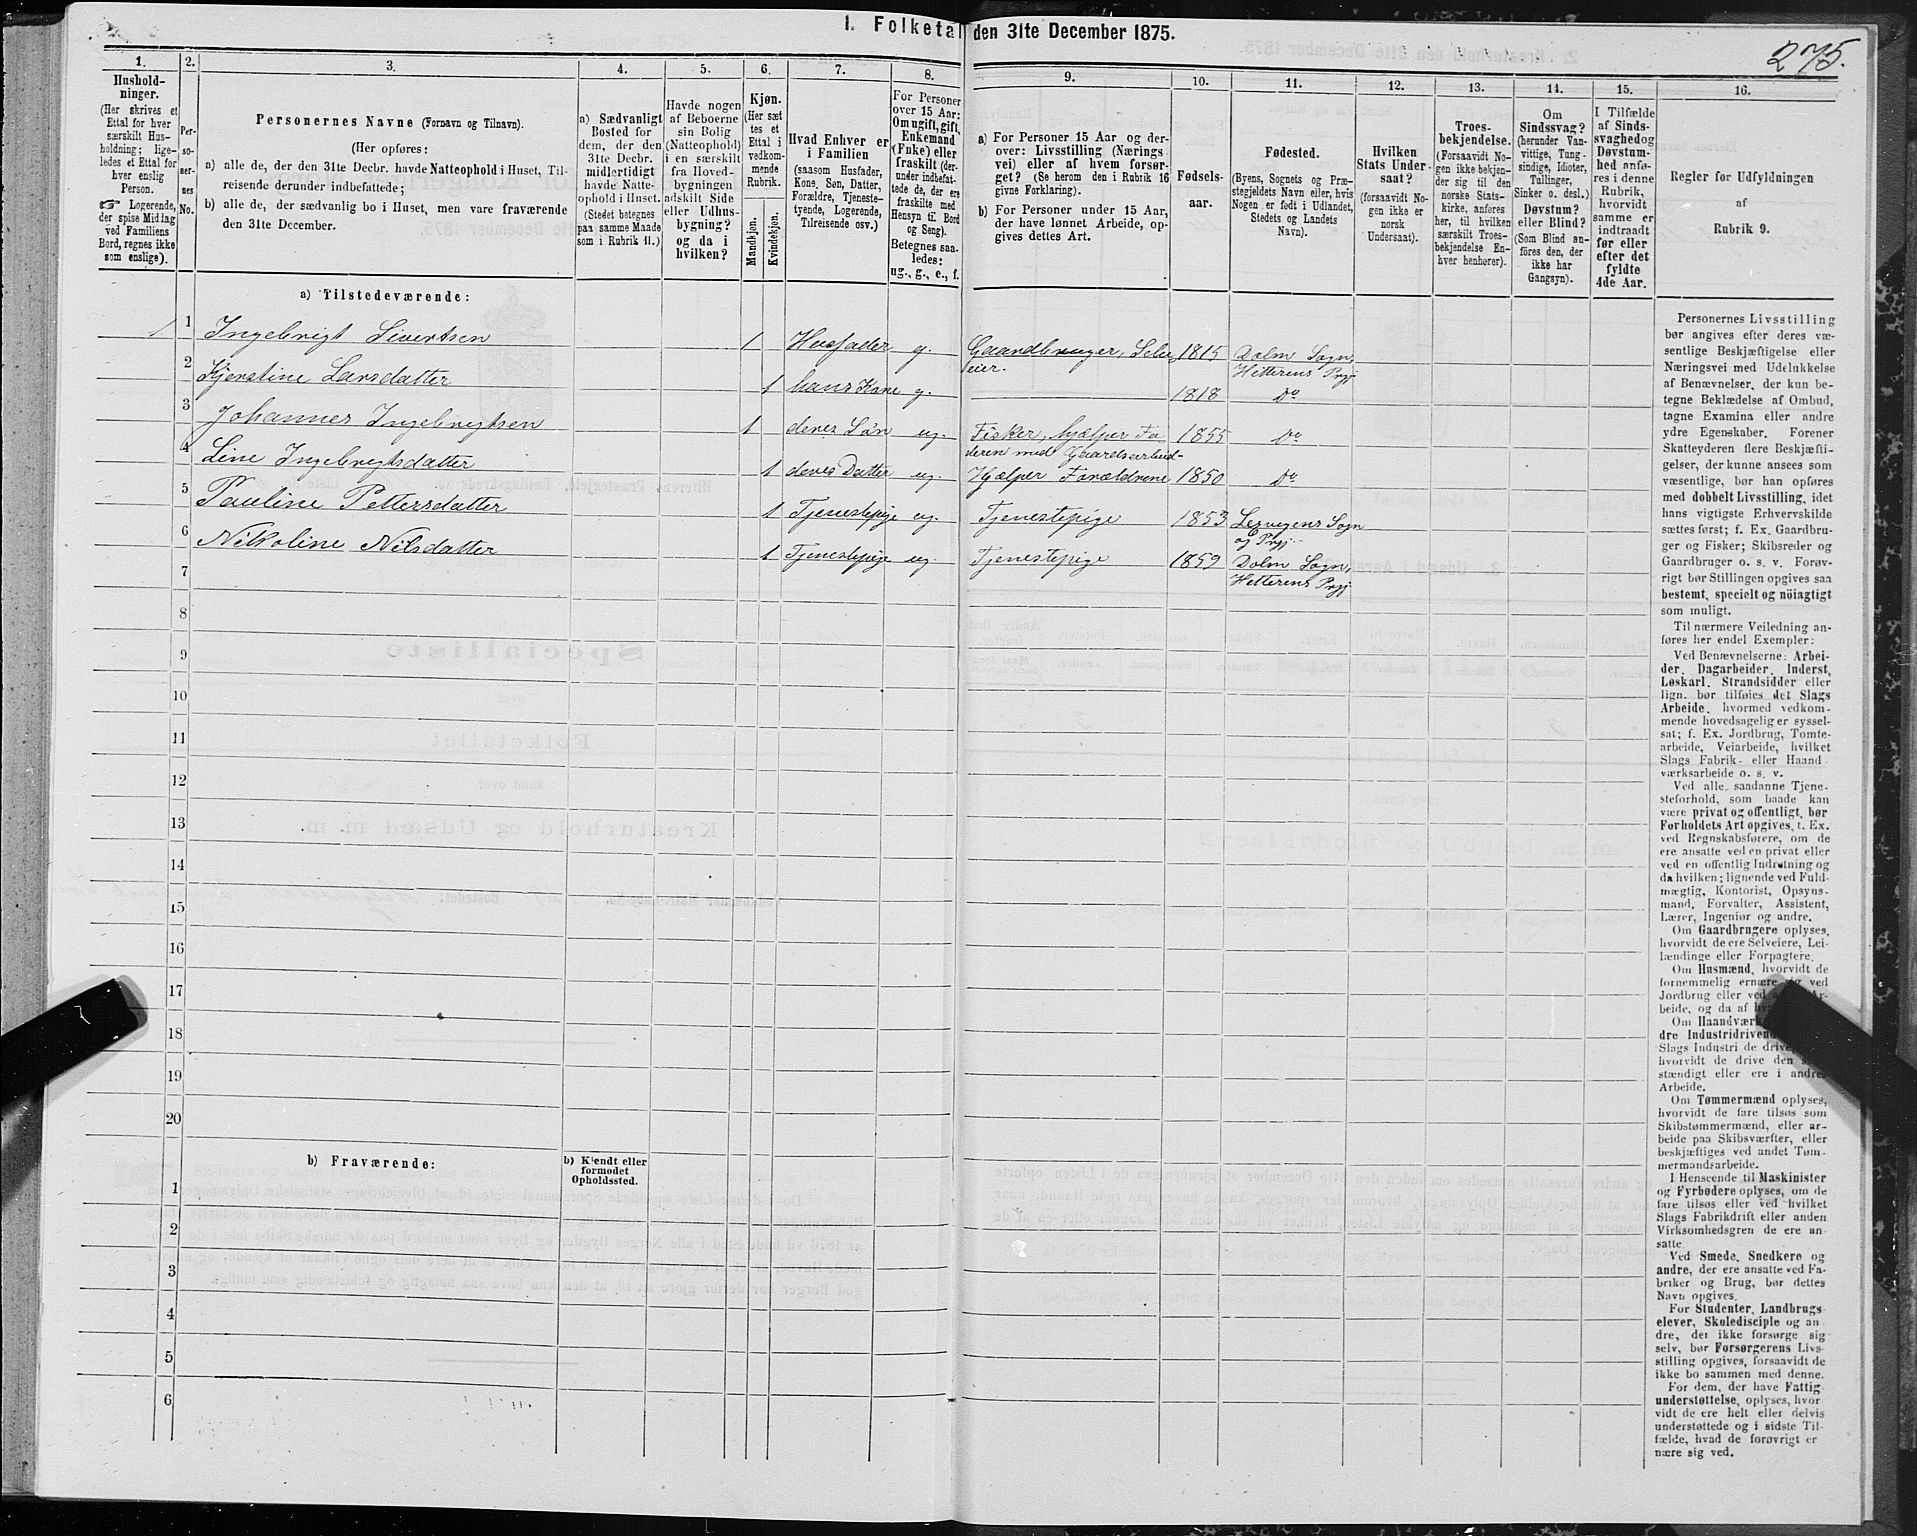 I. Folketal den 31te December 1875.
275.
1.
Hushold-
ninger.
(Her skrives et
Ettal for hver
særskilt Hus-
holdning; lige-
ledes et Ettal for
hver enslig
Person.
☞ Logerende,
der spise Middag
ved Familiens
Bord, regnes ikke
som enslige).
2.
Per-
so-
ner-
nes
No.
3.
Personernes Navne (Fornavn og Tilnavn).
(Her opføres:
a) alle de, der den 31te Decbr. havde Natteophold i Huset, Til-
reisende derunder indbefattede;
b) alle de, der sædvanlig bo i Huset, men vare fraværende
den 31te December.
4.
a) Sædvanligt
Bosted for
dem, der den
31te Decbr.
midlertidigt
havde Natte-
ophold i Huset.
(Stedet betegnes
paa samme Maade
som i Rubrik 11.)
5.
Havde nogen
af Beboerne
sin Bolig
(Natteophold)
i en særskilt
fra Hoved-
bygningen
adskilt Side
eller Udhus-
bygning?
og da i
hvilken?
6.
Kjøn.
(Her sæt
tes et
Ettal i
vedkom-
mende
Rubrik.
Mandkjøn.
Kvindekjøn.
7.
Hvad Enhver er
i Familien
(saasom Husfader,
Kone, Søn, Datter,
Forældre, Tjeneste-
tyende, Logerende,
Tilreisende osv.)
8.
For Personer
over 15 Aar:
Om ugift, gift,
Enkemand
(Enke) eller
fraskilt (der-
under indbefat-
tede de, der ere
fraskilte med
Hensyn til Bord
og Seng).
Betegnes saa-
ledes:
ug., g., e., f.
9.
a) For Personer 15 Aar og der-
over: Livsstilling (Nærings
vei) eller af hvem forsør-
get? (Se herom den i Rubrik 16
givne Forklaring).
b) For Personer under 15 Aar,
der have lønnet Arbeide, op-
gives dettes Art.
10.
Fødsels-
aar.
11.
Fødested.
(Byens, Sognets og Præ-
stegjeldets Navn eller, hvis
Nogen er født i Udlandet,
Stedets og Landets
Navn).
12.
Hvilken
Stats Under-
saat?
(forsaavidt No-
gen ikke er
norsk
Undersaat).
13.
Troes-
bekjendelse.
(Forsaavidt No-
gen ikke bekjen-
der sig til den
norske Stats-
kirke, anføres
her, til hvilken
særskilt Troes-
bekjendelse En-
hver henhører).
14.
Om
Sindssvag?
(herunder Van-
vittige, Tung-
sindige, Idioter,
Tullinger,
Sinker o. desl.)
Døvstum?
eller Blind?
(Som Blind an-
føres den, der
ikke har
Gangsyn).
15.
I Tilfælde
af Sinds-
svaghed og
Døvstum-
hed anfø-
res i denne
Rubrik,
hvorvidt
samme er
indtraadt
før eller
efter det
fyldte
4de Aar.
16.
Regler for Udfyldningen
af
Rubrik 9.
a) Tilstedeværende:
1 1 Ingebrigt Sivertsen 1 Husfader g. Gaardbruger, Selv- 1815 Dolm Sogn,
eier. Hitterens Prgj
2 Kjerstine Larsdatter 1 hans Kone g. 1818 Do
3 Johannes Ingebrigtsen 1 deres Søn ug. Fisker, hjælper Fa 1855 Do
deren med Gaardsarbeid-
4 Line Ingebrigtsdatter 1 deres Datter ug. Hjælper Forældrene 1850 Do
5 Pauline Pettersdatter 1 Tjenestepige ug. Tjenestepige 1853 Lervigens Sogn
og Prgj.
6 Nikoline Nilsdatter 1 Tjenestepige ug. Tjenestepige 1859 Dolm Sogn,
Hitterens Prgj
7
8
9
10
11
12
13
14
15
16
17
18
19
20
b) Fraværende:
b) Kjendt eller
formodet
Opholdssted.
1
2
3
4
5
6
Personernes Livsstilling
bør angives efter deres væ-
sentlige Beskjæftigelse eller
Næringsvei med Udelukkelse
af Benævnelser, der kun be-
tegne Beklædelse af Ombud,
tagne Examina eller andre
ydre Egenskaber. Forener
Skatteyderen flere Beskjæfti-
gelser, der kunne ansees som
væsentlige, bør han opføres
med dobbelt Livsstilling, idet
hans vigtigste Erhvervskilde
sættes først; f. Ex. Gaardbru-
ger og Fisker; Skibsreder og
Gaardbruger o. s. v. Forøv-
rigt bør Stillingen opgives saa
bestemt, specielt og nöiagtigt
som muligt.
Til nærmere Veiledning an-
føres her endel Exempler:
Ved Benævnelserne: Arbei-
der, Dagarbeider, Inderst,
Løskarl, Strandsidder eller
lign. bør tilføies det Slags
Arbeide, hvormed vedkom-
mende hovedsagelig er syssel-
sat; f. Ex. Jordbrug, Tomte-
arbeide, Veiarbeide, hvilket
Slags Fabrik- eller Haand
værksarbeide o. s. v.
Ved alle saadanne Tjene-
steforhold, som baade kan
være privat og offentligt, bør
Forholdets Art opgives, t. Ex.
ved Regnskabsførere, om de
ere ansatte ved en privat eller
ved en offentlig Indretning og
da hvilken; lignende ved Fuld-
mægtig, Kontorist, Opsyns-
mand, Forvalter, Assistent,
Lærer, Ingeniør og andre.
Om Gaardbrugere oplyses,
hvorvidt de ere Selveiere, Lei-
lændinge eller Forpagtere.
Om Husmænd, hvorvidt de
fornemmelig ernære sig ved
Jordbrug eller ved
beide, og da af
Om Haandværk
dre Industridrivend
Slags Industri de drive,
hvorvidt de drive den
stændigt eller ere i andres
Arbeide.
Om Tømmermænd oplyses,
hvorvidt de fare tilsøs som
Skibstømmermænd, eller ar-
beide paa Skibsværfter, eller
beskjæftiges ved andet Tøm-
mermandsarbeide.
I Henseende til Maskinister
og Fyrbødere oplyses, om de
fare tilsøs eller ved hvilket
Slags Fabrikdrift eller anden
Virksomhedsgren de ere an-
satte
Ved Smede, Snedkere og
andre, der ere ansatte ved Fa-
briker og Brug, bør dettes
Navn opgives.
For Studenter, Landbrugs
elever, Skoledisciple og an
dre, der ikke forsørge sig
selv, bør Forsørgerens Livs-
stilling opgives, forsaavidt de
ikke bo sammen med denne.
For dem, der have Fattig
understøttelse, oplyses, hvor
vidt de ere helt eller delvis
understøttede og i sidste Til-
fælde, hvad de forøvrigt er
nære sig ved.